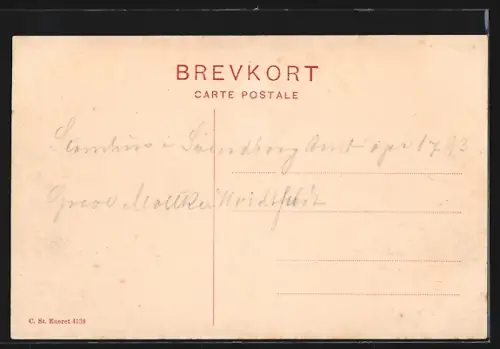 BREVKORT
CARTE POSTALE
Stamhus i Svendborg Amt 1793
Greve Moltke Hvidtfeldt
C. St. Eneret 4136